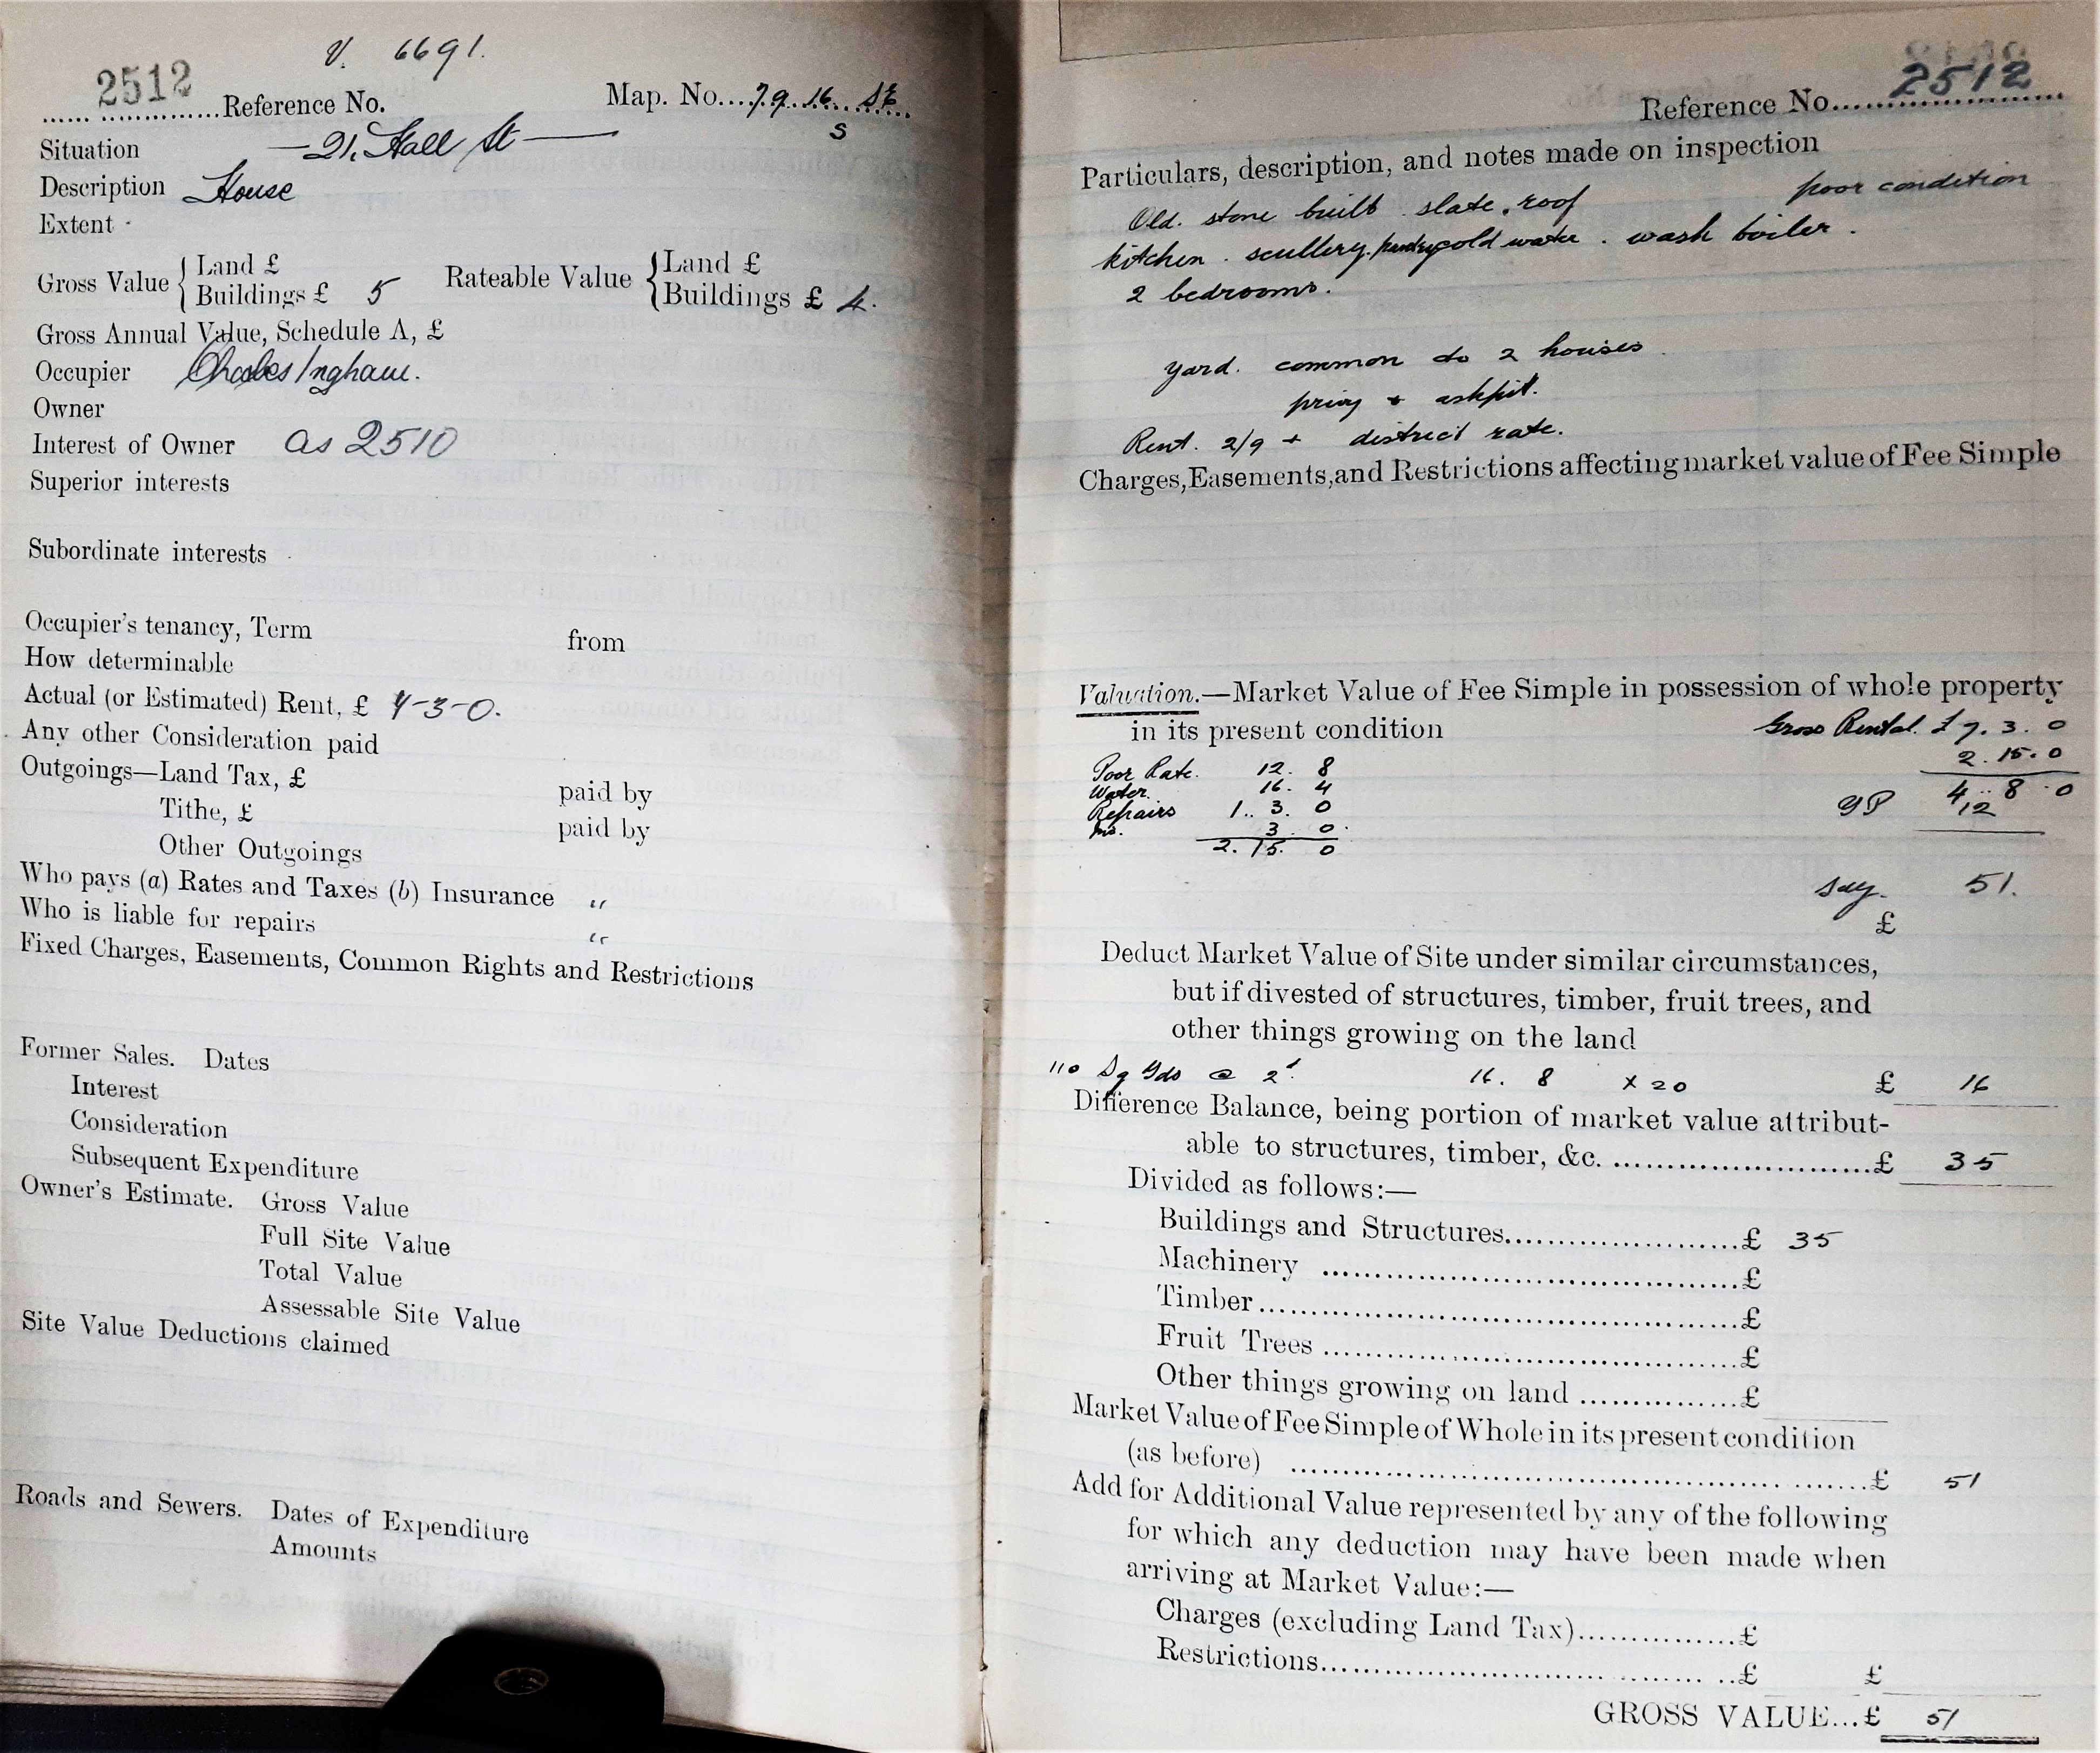 V. 6691.
2512
Reference No. Map. No. 79. 16 SE
S
Situation 21, Hall St
Description House
Extent
Gross Value { Land £
Buildings £ 5
Rateable Value { Land £
Buildings £ 4.
Gross Annual Value, Schedule A, £
Occupier Charles Ingham.
Owner
Interest of Owner as 2510
Superior interests
Subordinate interests
Occupier's tenancy, Term from
How determinable
Actual (or Estimated) Rent, £ 7-3-0.
Any other Consideration paid
Outgoings—Land Tax, £ paid by
Tithe, £ paid by
Other Outgoings
Who pays (a) Rates and Taxes (b) Insurance "
Who is liable for repairs "
Fixed Charges, Easements, Common Rights and Restrictions
Former Sales. Dates
Interest
Consideration
Subsequent Expenditure
Owner's Estimate. Gross Value
Full Site Value
Total Value
Assessable Site Value
Site Value Deductions claimed
Roads and Sewers. Dates of Expenditure
Amounts
Reference No. 2512
Particulars, description, and notes made on inspection
Old. stone built. slate. roof poor condition
kitchen. scullery. pantry cold water. wash boiler.
2 bedrooms.
yard. common to 2 houses
privy + ashpit.
Rent. 2/9 + district rate.
Charges, Easements, and Restrictions affecting market value of Fee Simple
Valuation.—Market Value of Fee Simple in possession of whole property
in its present condition Gross Rental. £ 7. 3. 0
2. 15. 0
Poor Rate. 12. 8
Water. 16. 4
Repairs 1.. 3. 0
Ins. 3 0.
2. 15. 0
4.. 8. 0
YP 12
say. 51.
£
Deduct Market Value of Site under similar circumstances,
but if divested of structures, timber, fruit trees, and
other things growing on the land
110 Sq Yds @ 2d. 16. 8 x 20 £ 16
Difference Balance, being portion of market value attribut-
able to structures, timber, &c. £ 35
Divided as follows:—
Buildings and Structures £ 35
Machinery £
Timber £
Fruit Trees £
Other things growing on land £
Market Value of Fee Simple of Whole in its present condition
(as before) £ 51
Add for Additional Value represented by any of the following
for which any deduction may have been made when
arriving at Market Value:—
Charges (excluding Land Tax) £
Restrictions £ £
GROSS VALUE... £ 51